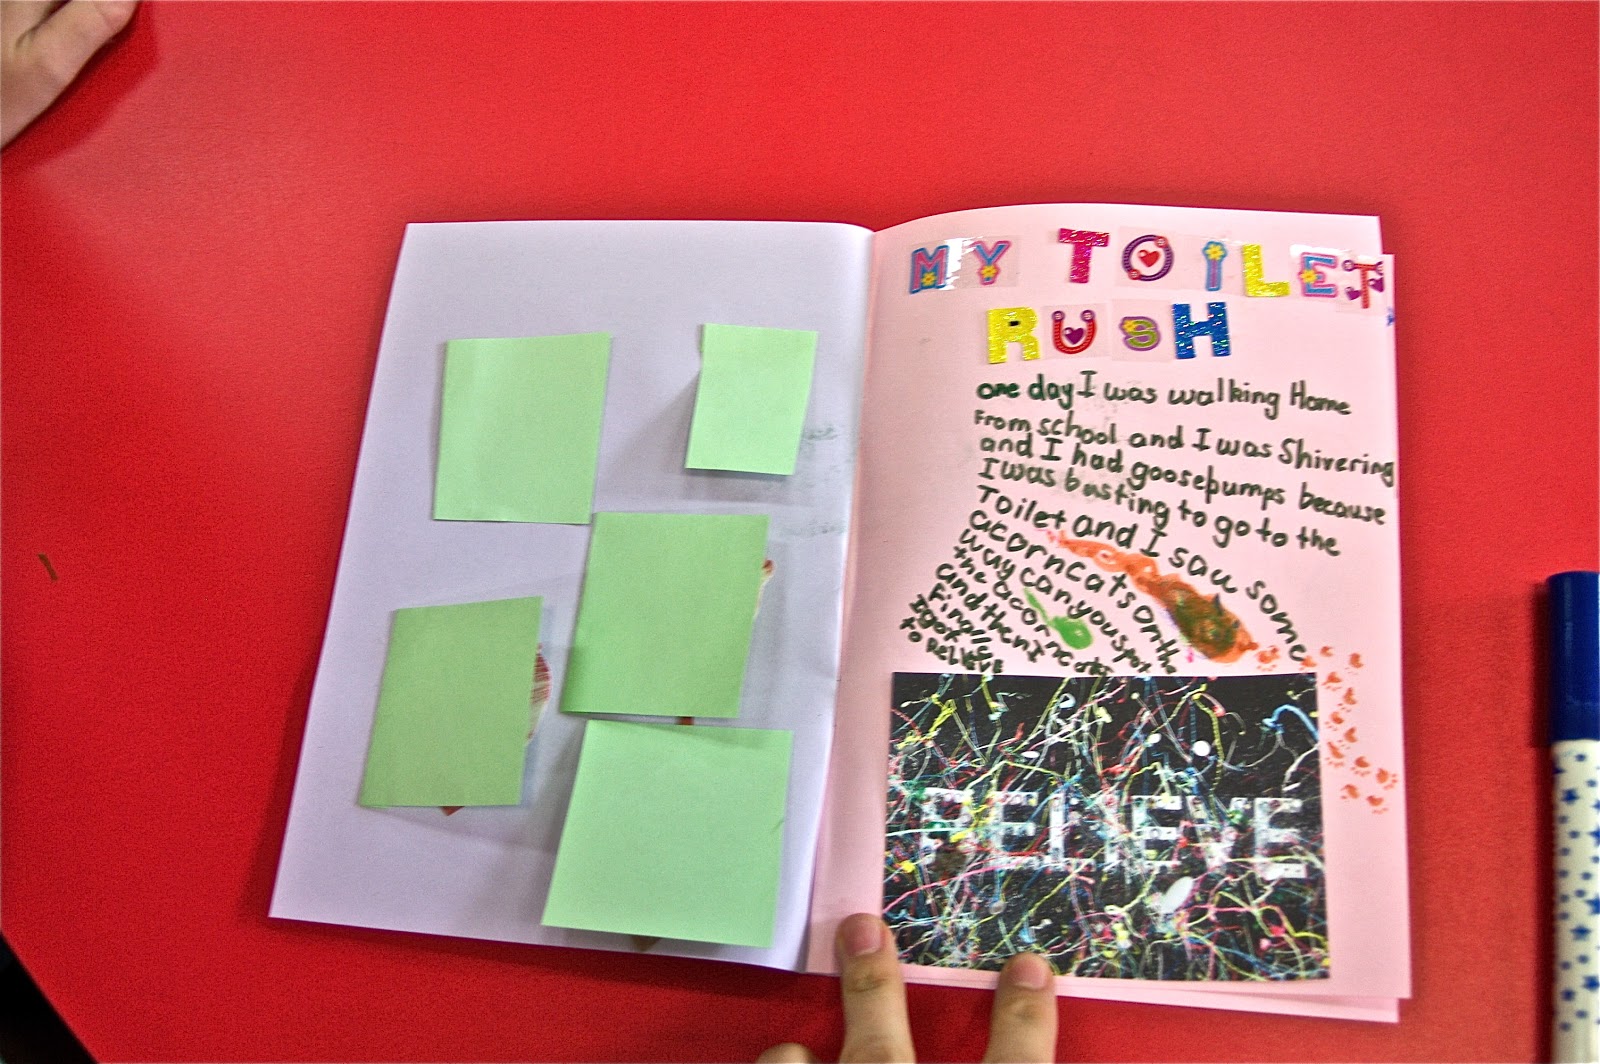 MY TOILET
RUSH
one day I was walking Home
From school and I was Shivering
and I had goosebumps because
I was busting to go to the
Toilet and I saw some
acorn cats on the
way can you spot
the acorn cats
and then I
Finally
I got
to RELIEVE
RELIEVE